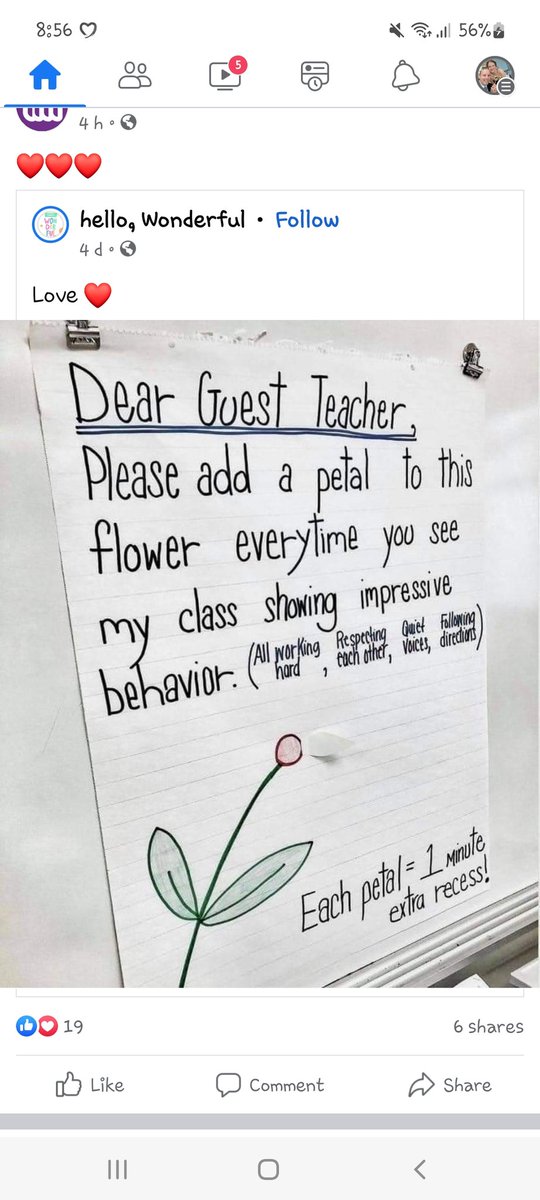 8:56
56%
5
4 h
hello, Wonderful • Follow
4 d
Love
Dear Guest Teacher,
Please add a petal to this
flower everytime you see
my class showing impressive
behavior. (All working hard, Respecting each other, Quiet Voices, Following directions)
Each petal = 1 minute
extra recess!
19
6 shares
Like
Comment
Share